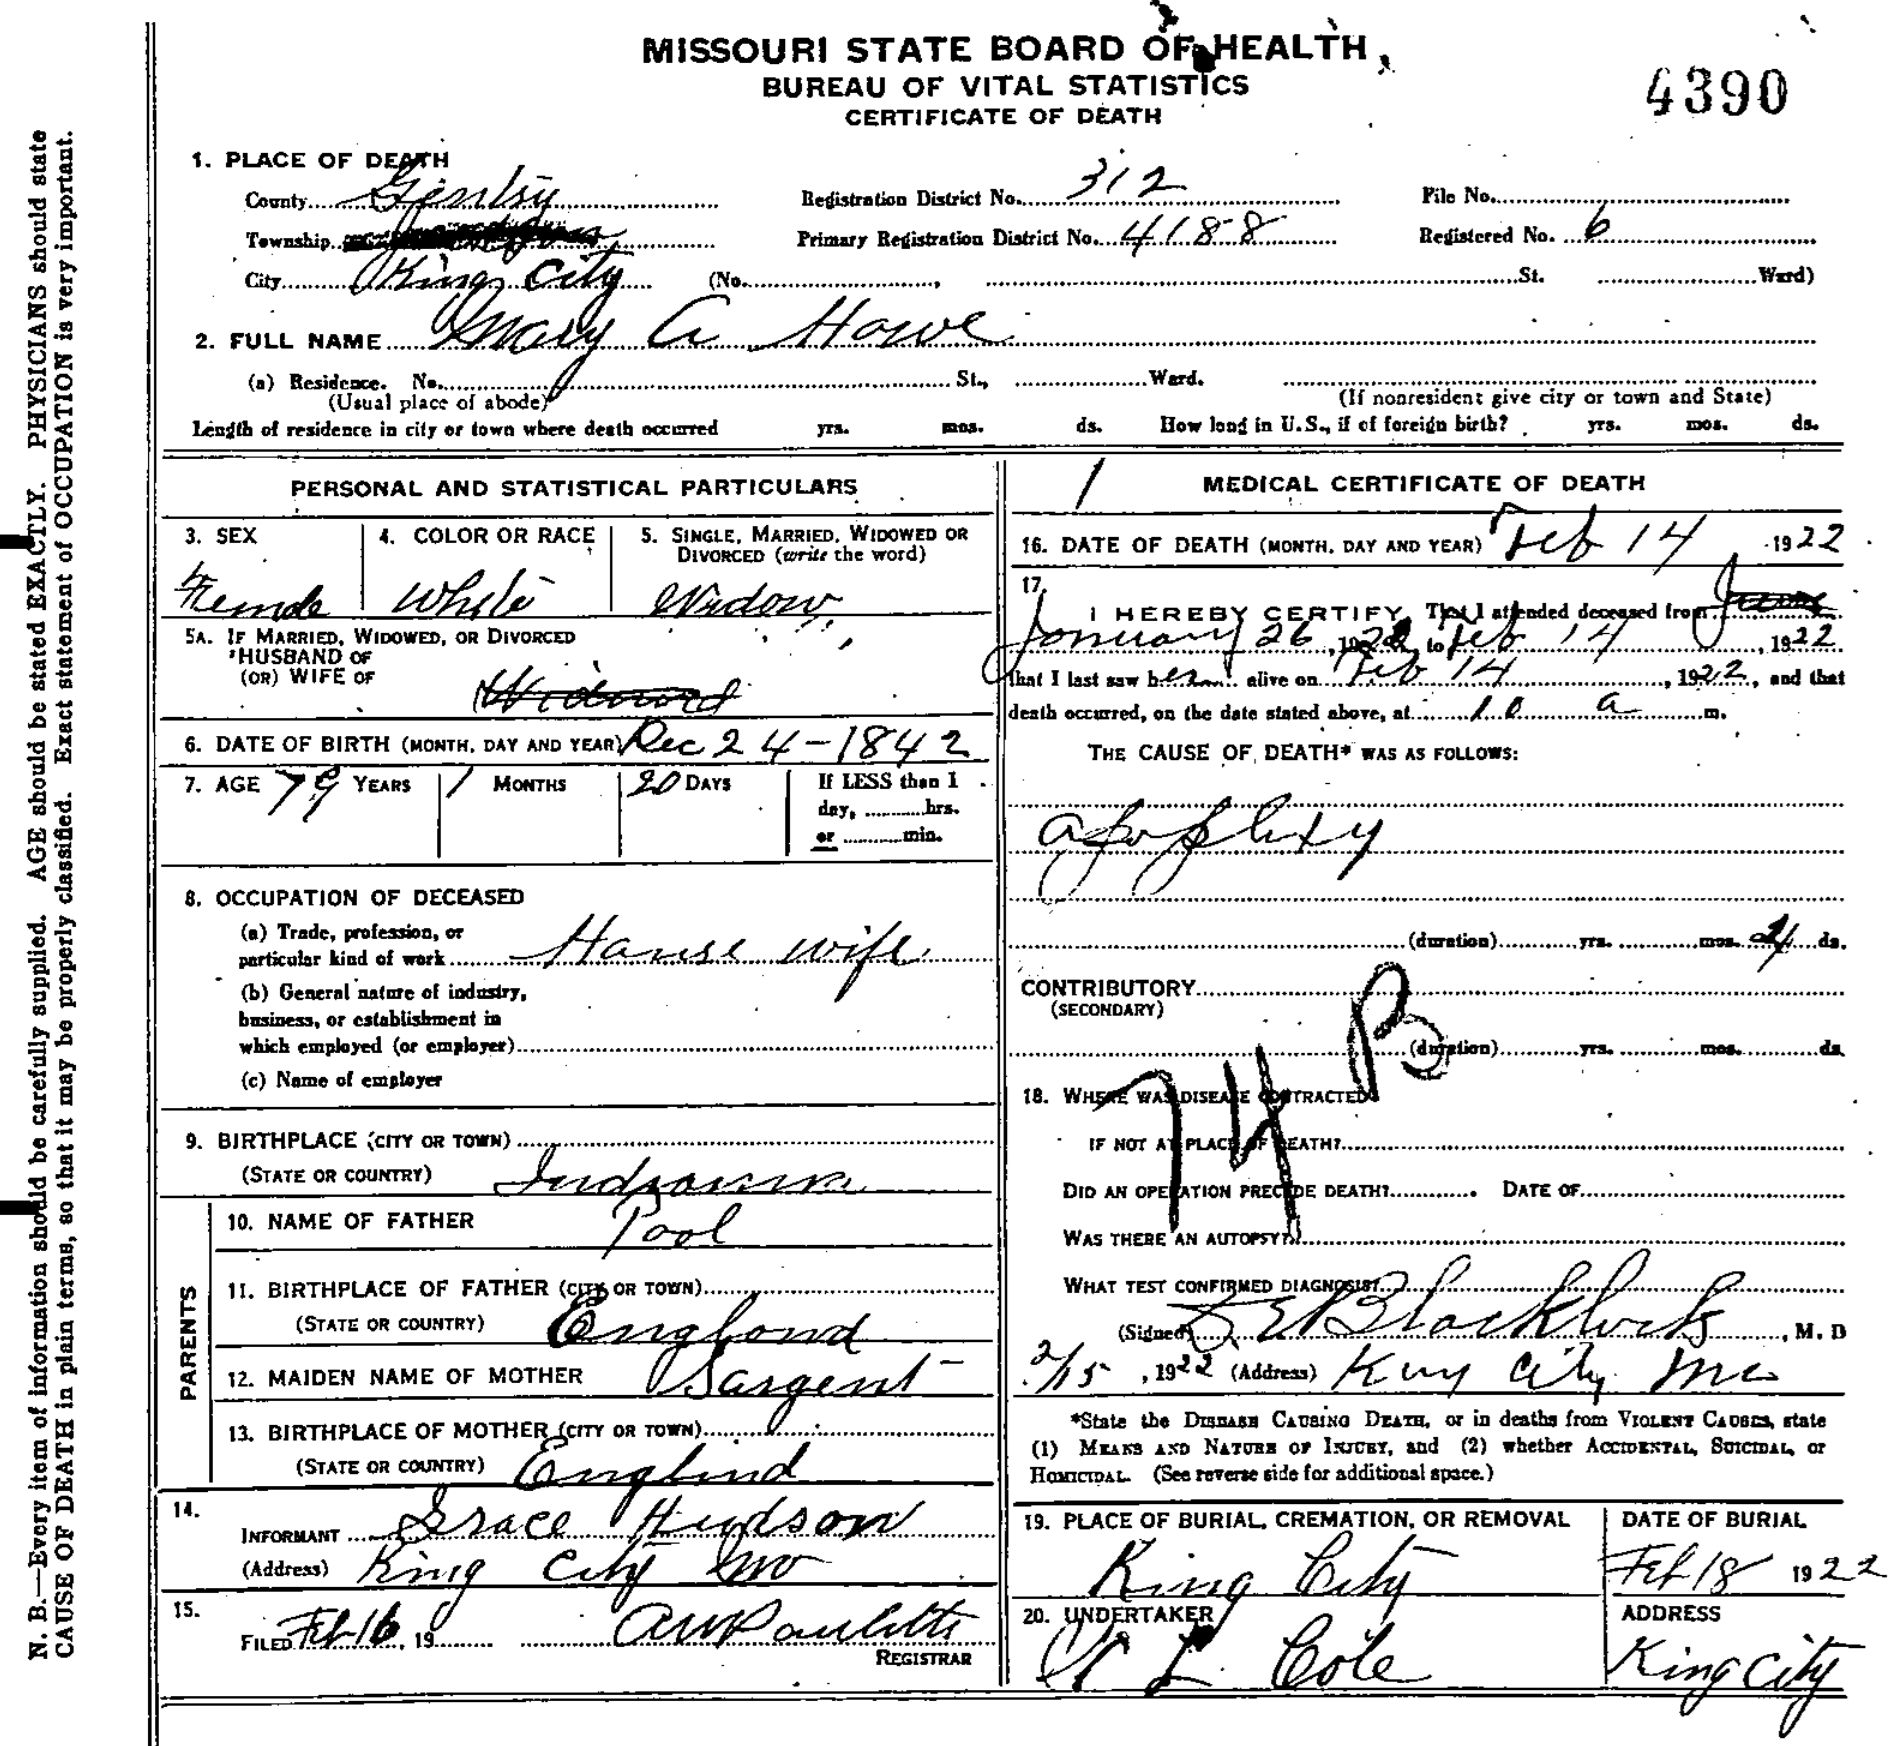 MISSOURI STATE BOARD OF HEALTH
BUREAU OF VITAL STATISTICS
CERTIFICATE OF DEATH
4390
1. PLACE OF DEATH
County Gentry Registration District No. 312 File No.
Township Primary Registration District No. 4188 Registered No. 6
City King City (No. , St. Ward)
2. FULL NAME Mary A Howe
(a) Residence. No. St., Ward.
(Usual place of abode) (If nonresident give city or town and State)
Length of residence in city or town where death occurred yrs. mos. ds. How long in U.S., if of foreign birth? yrs. mos. ds.
PERSONAL AND STATISTICAL PARTICULARS
3. SEX 4. COLOR OR RACE 5. SINGLE, MARRIED, WIDOWED OR
DIVORCED (write the word)
Female White Widow
5A. IF MARRIED, WIDOWED, OR DIVORCED
HUSBAND OF
(OR) WIFE OF
Widowed
6. DATE OF BIRTH (MONTH, DAY AND YEAR) Dec 24-1842
7. AGE 79 YEARS 1 MONTHS 20 DAYS If LESS than 1
day, hrs.
or min.
8. OCCUPATION OF DECEASED
(a) Trade, profession, or
particular kind of work House wife
(b) General nature of industry,
business, or establishment in
which employed (or employer)
(c) Name of employer
9. BIRTHPLACE (CITY OR TOWN)
(STATE OR COUNTRY) Indiana
PARENTS
10. NAME OF FATHER Pool
11. BIRTHPLACE OF FATHER (CITY OR TOWN)
(STATE OR COUNTRY) England
12. MAIDEN NAME OF MOTHER Sargent
13. BIRTHPLACE OF MOTHER (CITY OR TOWN)
(STATE OR COUNTRY) England
14.
INFORMANT Grace Hudson
(Address) King City Mo
15.
FILED Feb 16, 19
REGISTRAR
1 MEDICAL CERTIFICATE OF DEATH
16. DATE OF DEATH (MONTH, DAY AND YEAR) Feb 14 1922
17.
I HEREBY CERTIFY, That I attended deceased from
January 26, 1922, to Feb 14, 1922
that I last saw her alive on Feb 14, 1922, and that
death occurred, on the date stated above, at 10 a m.
THE CAUSE OF DEATH* WAS AS FOLLOWS:
apoplexy
(duration) yrs. mos. ds.
CONTRIBUTORY
(SECONDARY)
(duration) yrs. mos. ds.
74 B
18. WHERE WAS DISEASE CONTRACTED
IF NOT AT PLACE OF DEATH?
DID AN OPERATION PRECEDE DEATH? DATE OF
WAS THERE AN AUTOPSY?
WHAT TEST CONFIRMED DIAGNOSIS?
(Signed) , M. D
2/15, 1922 (Address) King City Mo
*State the DISEASE CAUSING DEATH, or in deaths from VIOLENT CAUSES, state
(1) MEANS AND NATURE OF INJURY, and (2) whether ACCIDENTAL, SUICIDAL, or
HOMICIDAL. (See reverse side for additional space.)
19. PLACE OF BURIAL, CREMATION, OR REMOVAL DATE OF BURIAL
King City Feb 18 1922
20. UNDERTAKER ADDRESS
L Cole King City
N. B.—Every item of information should be carefully supplied. AGE should be stated EXACTLY. PHYSICIANS should state
CAUSE OF DEATH in plain terms, so that it may be properly classified. Exact statement of OCCUPATION is very important.